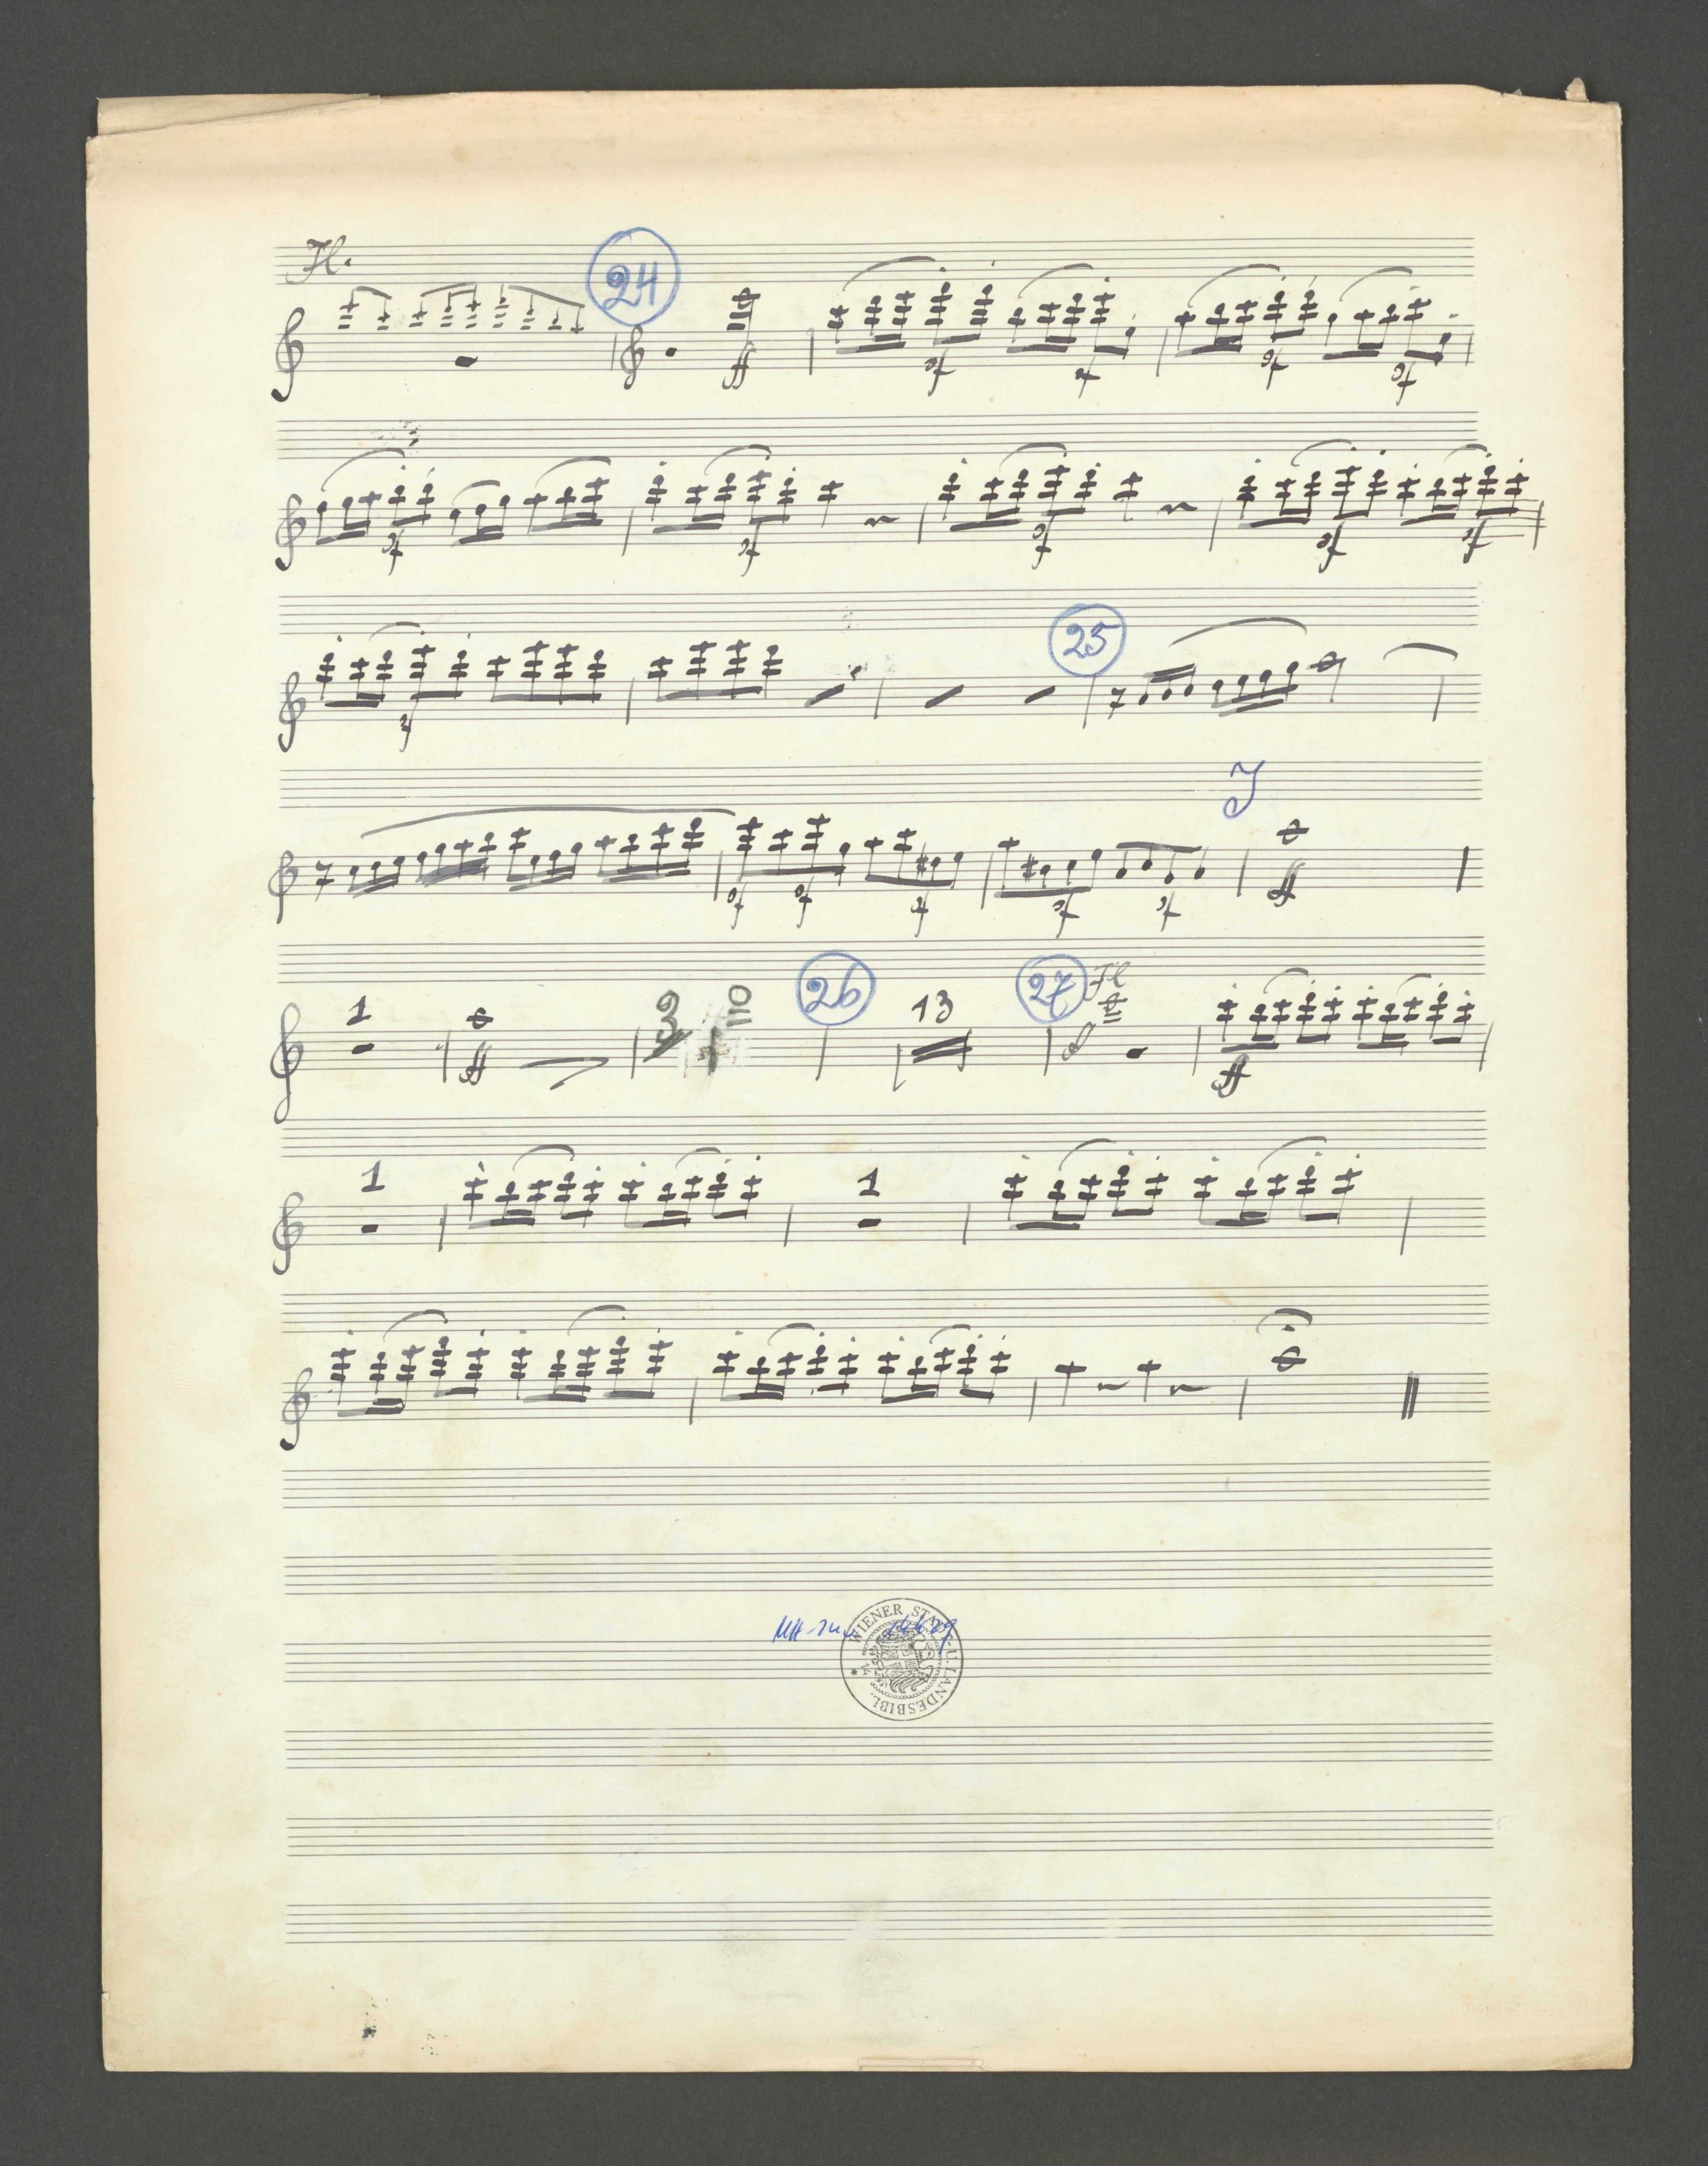 Fl.
24
ff
sf sf sf sf
sf sf sf sf sf
sf
25
J
sf sf sf sf sf ff
26
27 Fl
1 ff 3 13
ff
1 1
WIENER STADT U. LANDESBIBL.